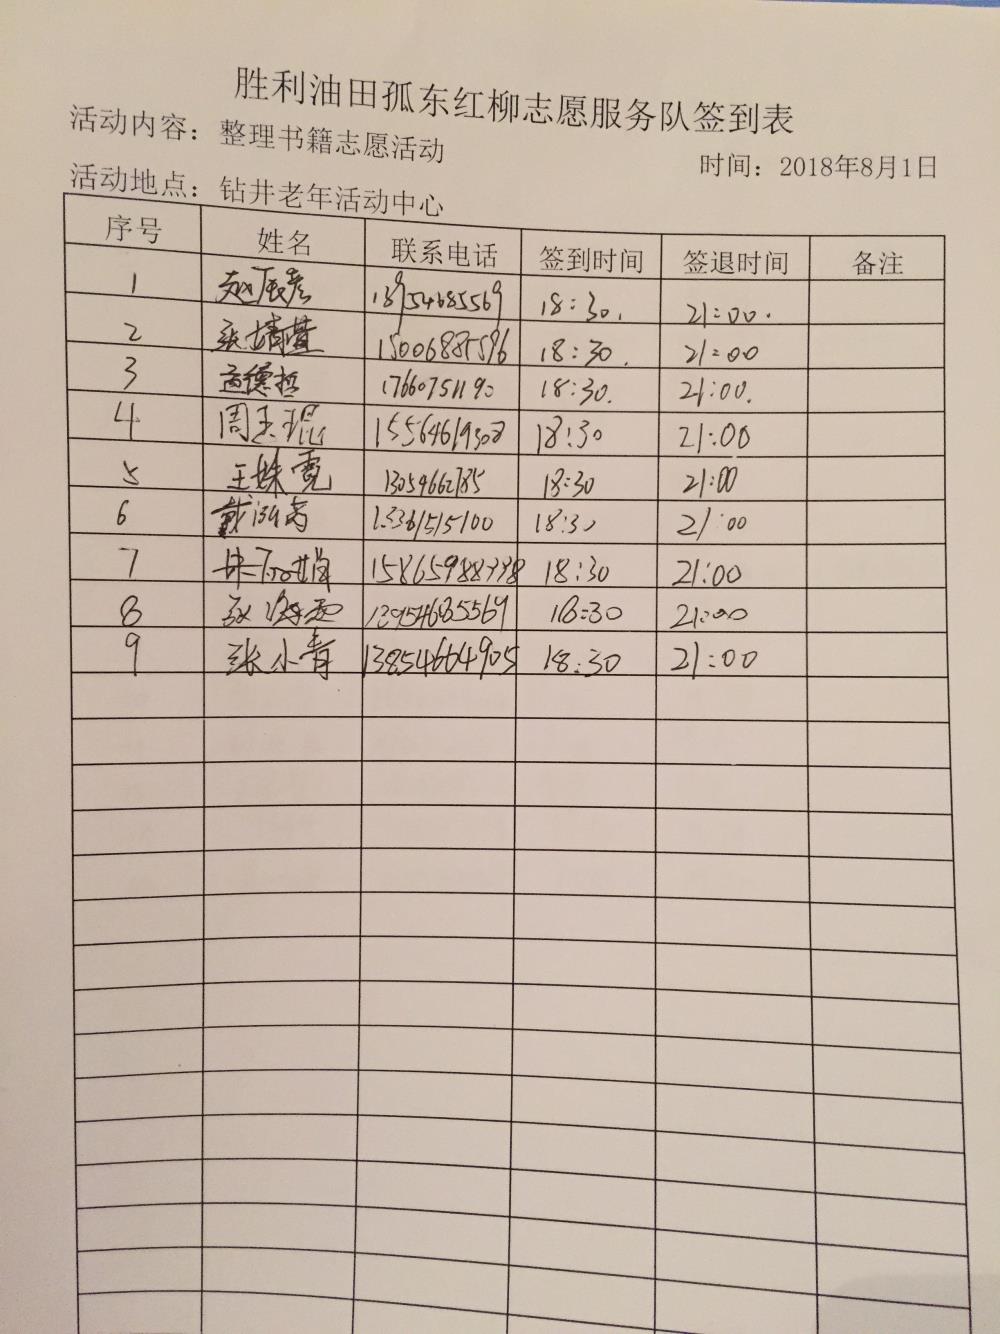 胜利油田孤东红柳志愿服务队签到表
活动内容：整理书籍志愿活动
时间：2018年8月1日
活动地点：钻井老年活动中心
序号 姓名 联系电话 签到时间 签退时间 备注
1 赵辰彦 13954685569 18:30. 21:00.
2 张靖萱 15006885596 18:30. 21:00
3 高德哲 17660751190 18:30. 21:00.
4 周玉琨 15564619308 18:30 21:00
5 王姝霓 13054662785 18:30 21:00
6 13361515100 18:30 21:00
7 18:30 21:00
8 13954685569 18:30 21:00
9 张小青 13854664905 18:30 21:00